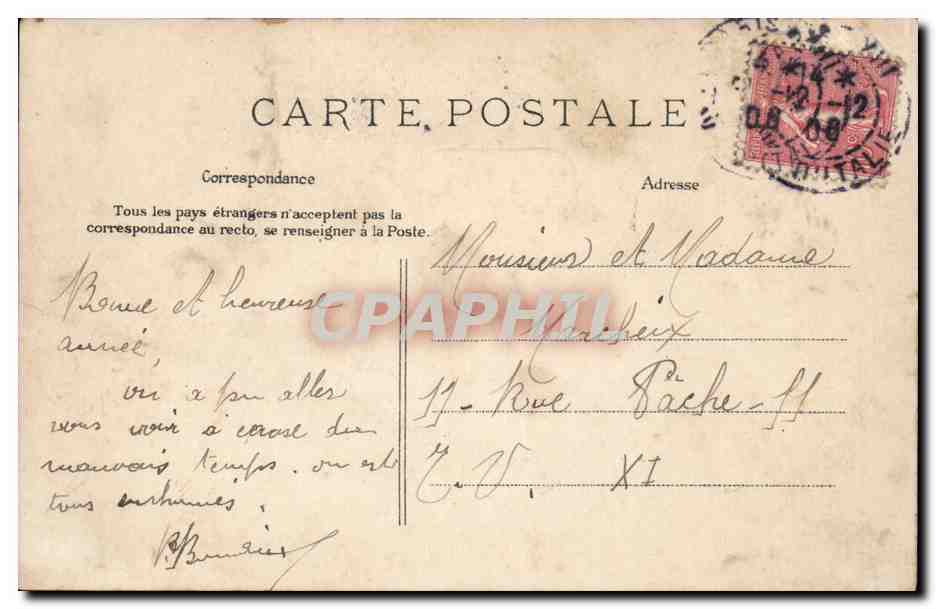 CARTE POSTALE
14
-12 -12
08 08
D'ITALIE
Correspondance
Adresse
Tous les pays étrangers n'acceptent pas la
correspondance au recto, se renseigner à la Poste.
Monsieur et Madame
Marcheix
11 - Rue Pache - 11
E. V. XI
Bonne et heureuse
année,
on a pu aller
vous voir à cause du
mauvais temps. on est
tous enrhumés.
CPAPHIL